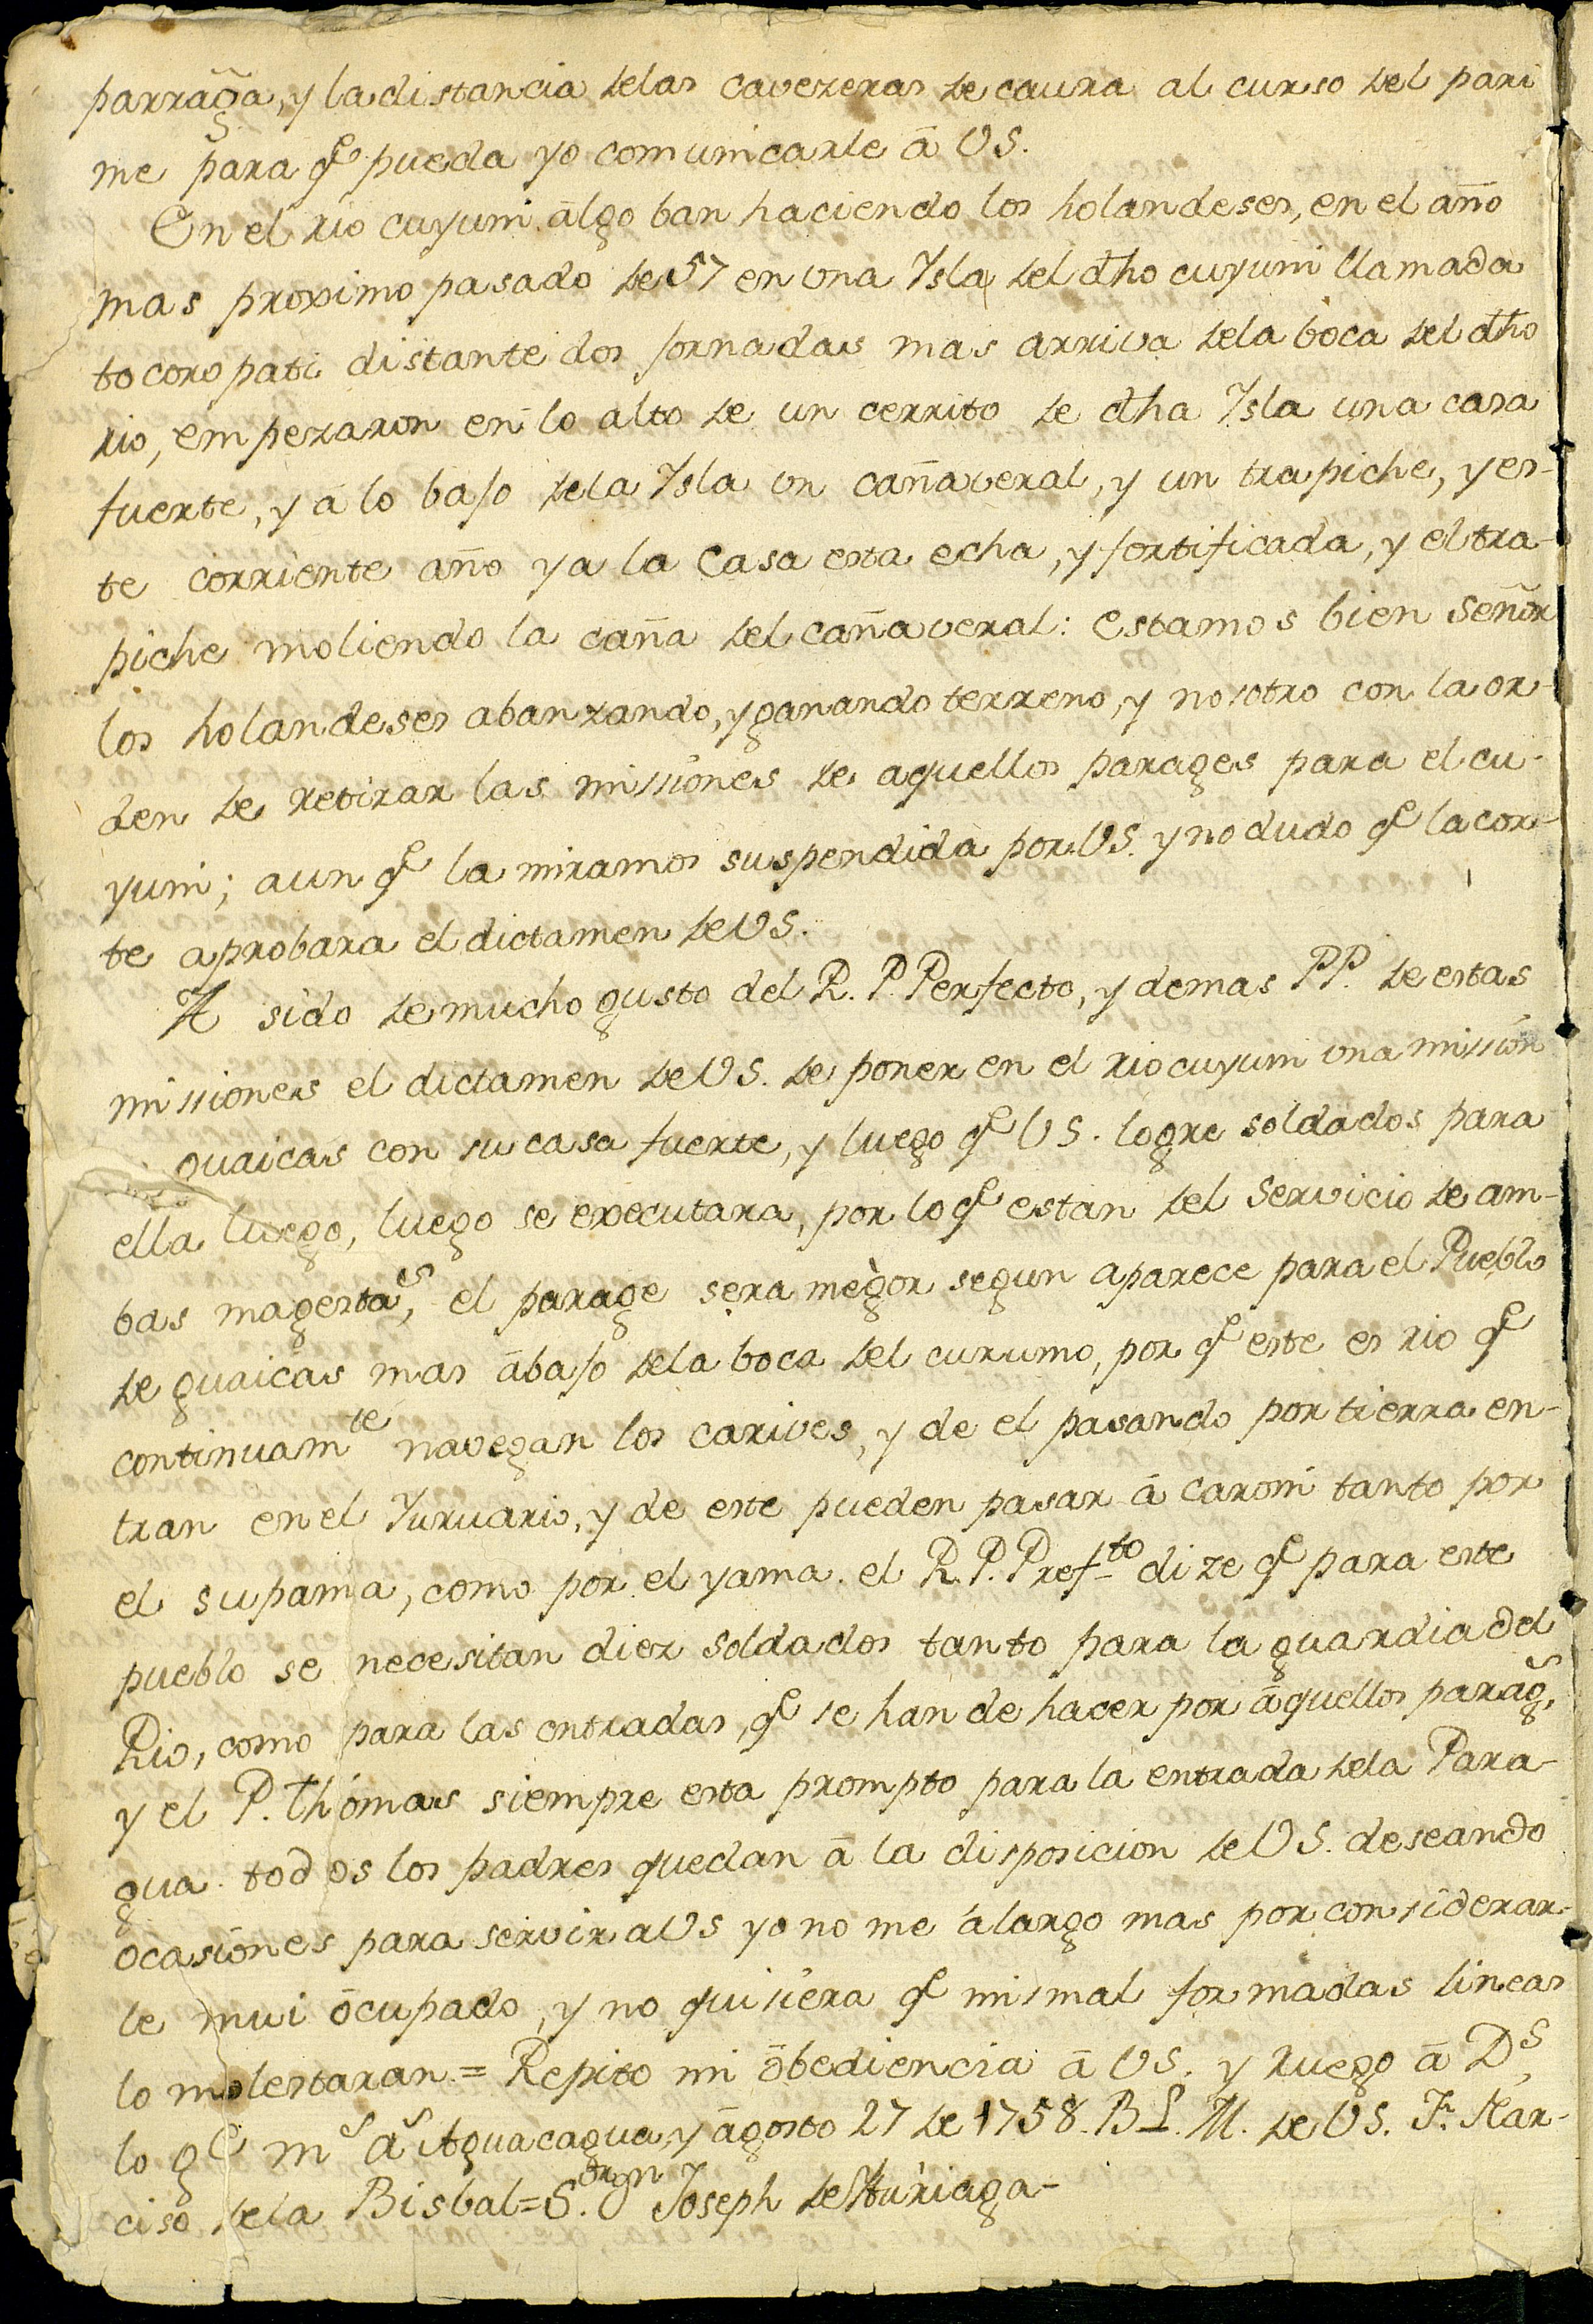 parrag̃a, y la distancia delas cavezeras de caura al curso del pari
me para q̃ pueda yo comunicarle ā VS.
En el rio cuyuni ālgo ban haciendo los holandeses, en el año
mas proximo pasado de 57 en vna Ysla del dho cuyuni llamada
tocoropati distante dos jornadas mas arriva dela boca del dho
rio, empezaron en lo alto de un cerrito de dha Ysla una casa
fuerte, y á lo bajo dela Ysla vn cañaveral, y un trapiche, y es-
te corriente año ya la Casa esta echa, y fortificada, y el tra-
piche moliendo la caña del cañaveral: estamos bien Señor
los holandeses abanzando, y ganando terreno, y nosotro con la or-
den de retirar las missiones de aquellos parages para el cu-
yuni; aun q̃ la miramos suspendida por VS. y no dudo q̃ la cor-
te aprobara el dictamen de VS.
A sido de mucho gusto del R. P. Perfecto, y demas PP. de estas
missiones el dictamen de VS. de poner en el rio cuyuni vna mission
guaicas con su casa fuerte, y luego q̃ VS. logre soldados para
ella luego, luego se executara, por lo q̃ estan del Servicio de am-
bas magestas, el parage sera megor segun aparece para el Pueblo
de guaicas mas ābajo dela boca del curumo, por q̃ este es rio q̃
continuamte navegan los carives, y de el pasando por tierra en-
tran en el Yuruario, y de este pueden pasar ā caroni tanto por
el supama, como por el yama. el R. P. Prefto dize q̃ para este
pueblo se necesitan diez soldados tanto para la guardia del
Rio, como para las entradas, q̃ se han de hacer por āquellos parags,
y el P. Thomas siempre esta prompto para la entrada dela Para-
gua. todos los padres quedan ā la disposicion de VS. deseando
ocasiones para servir a VS yo no me alargo mas por considerar-
le mui ōcupado, y no quisiera q̃ mis mal formadas lineas
lo molestaran = Repito mi ōbediencia ā VS. y ruego ā Ds,
lo ge ms as Aguacagua, y āgosto 27 de 1758. B L. M. de VS. Fr. Nar-
ciso dela Bisbal = S.or Dn Joseph de Yturiaga-